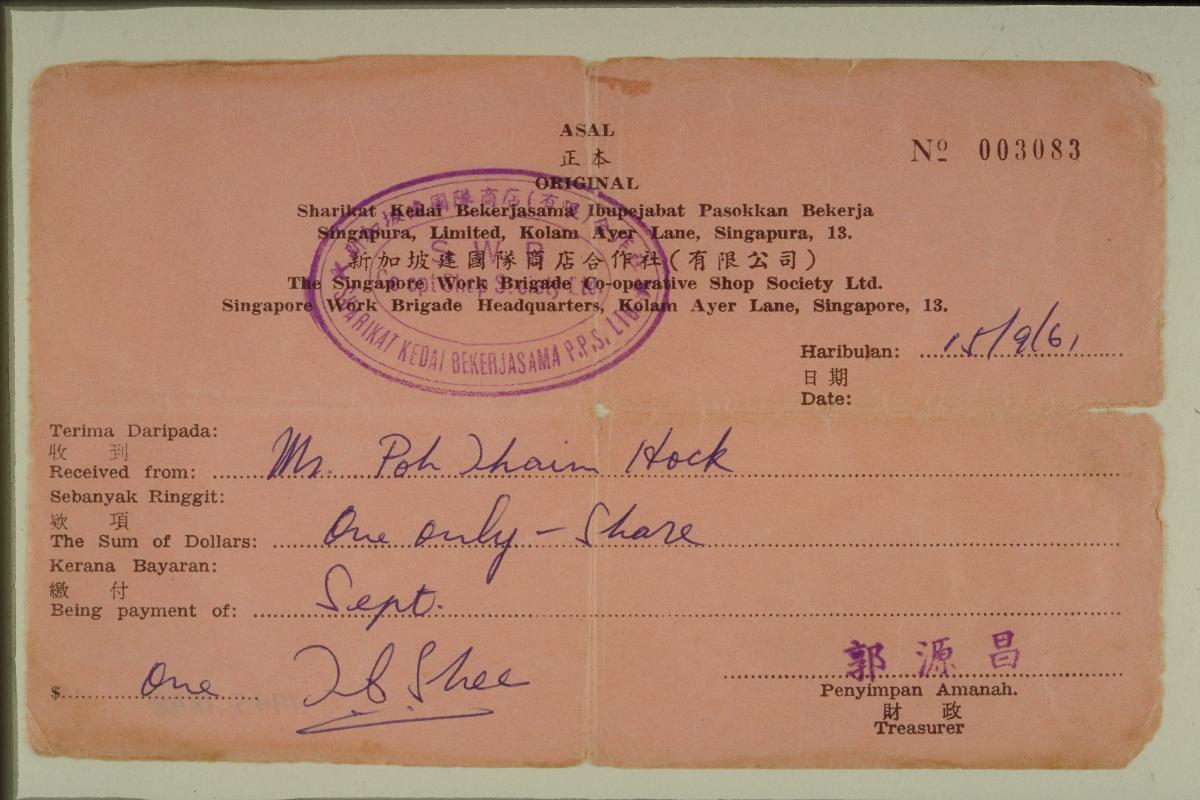 ASAL
正本
ORIGINAL
Nº 003083
Sharikat Kedai Bekerjasama Ibupejabat Pasokkan Bekerja
Singapura, Limited, Kolam Ayer Lane, Singapura, 13.
新加坡建國隊商店合作社(有限公司)
The Singapore Work Brigade Co-operative Shop Society Ltd.
Singapore Work Brigade Headquarters, Kolam Ayer Lane, Singapore, 13.
S W B
Co-opt Shop Society Ltd
SHARIKAT KEDAI BEKERJASAMA P.P.S. LTD
Haribulan: 15/9/61
日期
Date:
Terima Daripada:
收到
Received from: Mr. Poh Hock
Sebanyak Ringgit:
欵項
The Sum of Dollars: One only - Share
Kerana Bayaran:
繳付
Being payment of: Sept.
$ One Shee
郭源昌
Penyimpan Amanah.
財政
Treasurer